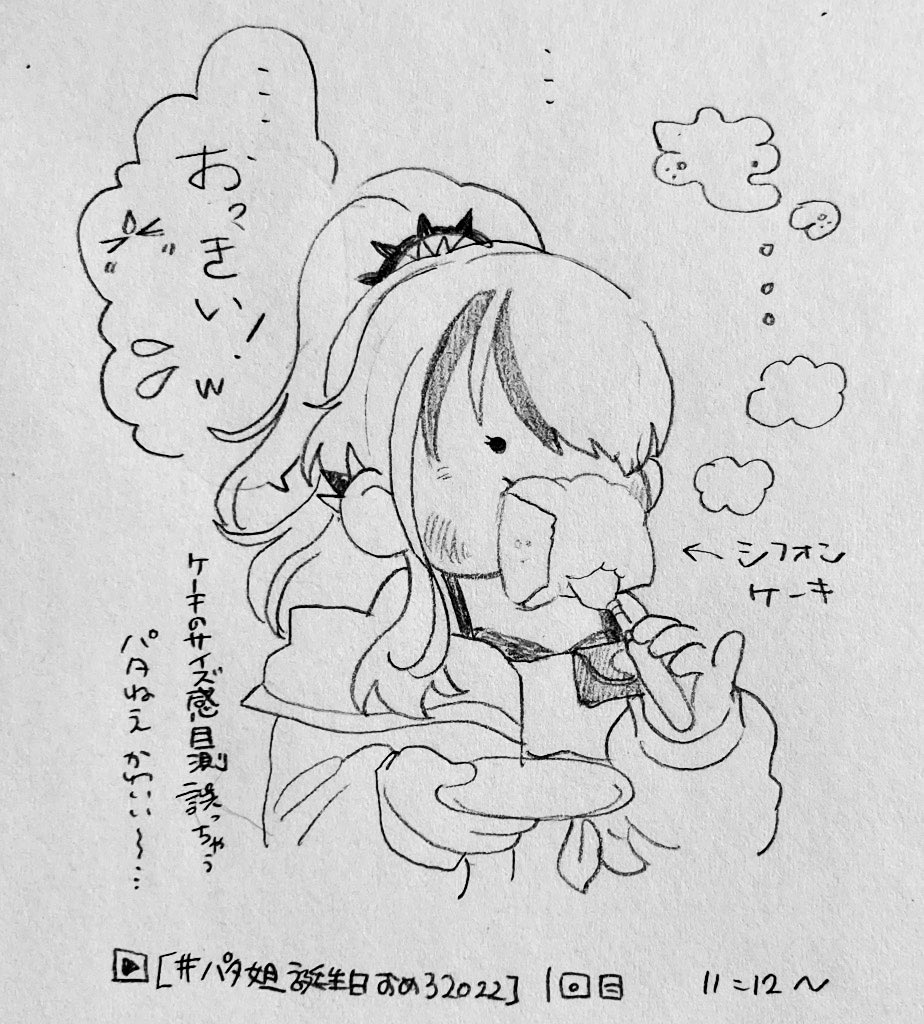 おっきい！w
← シフォン
ケーキ
ケーキのサイズ感目測誤っちゃう
パタねえ かわいい〜…
▶ [#パタ姐誕生日おめ32022] 1回目 11:12〜